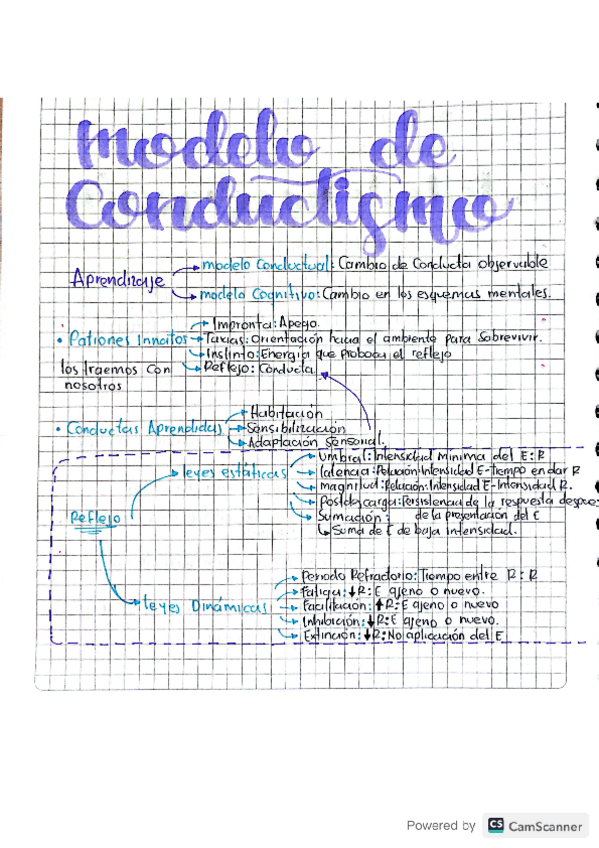 Modelo de
Conductismo
Aprendizaje
modelo Conductual: Cambio de Conducta observable
modelo Cognitivo: Cambio en los esquemas mentales.
• Patrones Innatos
los traemos con
nosotros
Impronta: Apego.
Taxias: Orientación hacia el ambiente para sobrevivir.
Instinto: Energía que proboca el reflejo
Reflejo: Conducta
• Conductas Aprendidas
Habitación
Sensibilización
Adaptación Sensorial.
Reflejo
leyes estáticas
Umbral: Intensidad Minima del E:R
latencia: Relación: Intensidad E-Tiempo en dar R
magnitud: Relación: Intensidad E-Intensidad R.
Postdescarga: Persistencia de la respuesta despues
de la presentación del E
Sumación:
Suma de E de baja intensidad.
leyes Dinámicas
Periodo Refractorio: Tiempo entre R:R
Fatiga: ↓R: E ajeno o nuevo.
Facilitación: ↑R: E ajeno o nuevo
Inhibición: ↓R: E ajeno o nuevo.
Extinción: ↓R: No aplicación del E
Powered by CS CamScanner